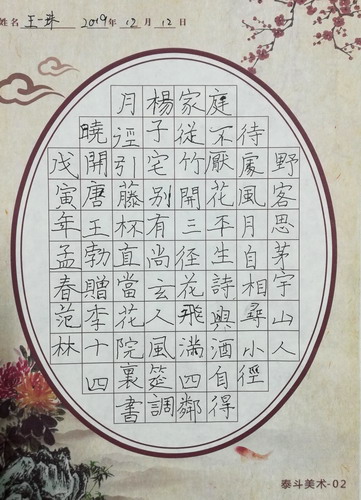 姓名 王一珠 2019年12月12日
野客思茅宇山人
待處風月自相尋小徑
庭不厭花平生詩與酒自得
家從竹開三径花飛滿四鄰
楊子宅别有尚玄人風筵調
月徑引藤杯直當花院裏書
曉開唐王勃贈李十四
戊寅年孟春范林
泰斗美术-02